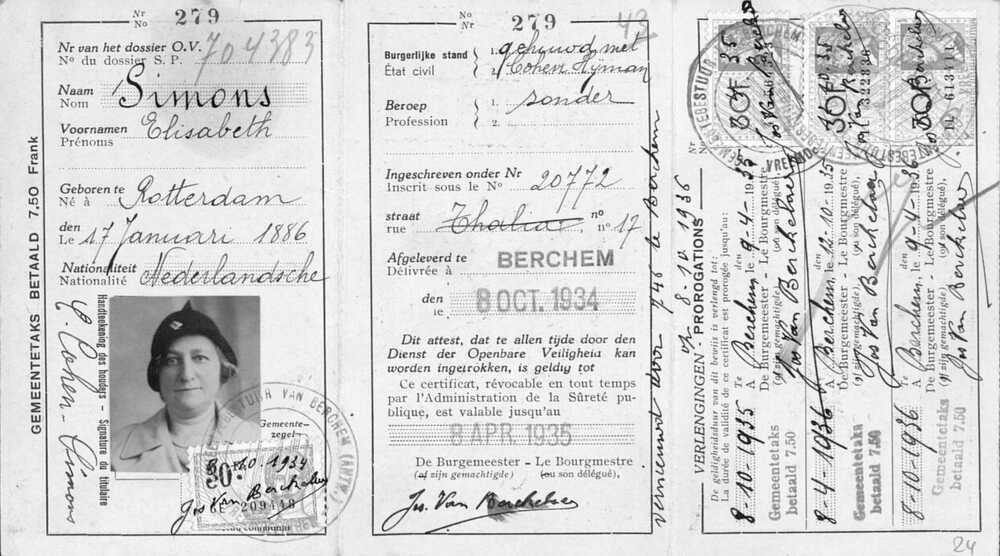 Nr
No 279
Nr van het dossier O.V.
No du dossier S.P. 704383
Naam
Nom Simons
Voornamen
Prénoms Elisabeth
Geboren te
Né à Rotterdam
den
Le 17 Januari 1886
Nationaliteit
Nationalité Nederlandsche
GEMEENTETAKS BETAALD 7,50 Frank
Handteekening des houders - Signature du titulaire
E. Cohen-Simons
Gemeente-
zegel
8-10-1934
Jos Van Berchelaer
209448
No
Nr 279
42
Burgerlijke stand
État civil
1. gehuwd met
2. Cohen Hyman
Beroep
Profession
1. zonder
2.
Ingeschreven onder Nr
Inscrit sous le No 20772
straat
rue Thalia no 17
Afgeleverd te
Délivrée à BERCHEM
den
le 8 OCT. 1934
Dit attest, dat te allen tijde door den
Dienst der Openbare Veiligheid kan
worden ingetrokken, is geldig tot
Ce certificat, révocable en tout temps
par l'Administration de la Sûreté pu-
blique, est valable jusqu'au
8 APR. 1935
De Burgemeester - Le Bourgmestre
(of zijn gemachtigde) (ou son délégué),
Jos. Van Berchelaer
vernieuwd door 746 te Berchem
op 8-10-1936
VERLENGINGEN - PROROGATIONS
De geldigheidsduur van dit bewijs is verlengd tot:
La durée de validité de ce certificat est prorogée jusqu'au:
8-10-1935
Te
A Berchem, den
le 9-4-1935
De Burgemeester - Le Bourgmestre
(of zijn gemachtigde) (ou son délégué),
Jos Van Berchelaer
Gemeentetaks
betaald 7.50
8-4-1936
A Berchem, le 12-10-1935
De Burgemeester - Le Bourgmestre
(of zijn gemachtigde) (ou son délégué),
Jos Van Berchelaer
Gemeentetaks
betaald 7.50
8-10-1936
A Berchem, le 9-4-1936
De Burgemeester - Le Bourgmestre
(of zijn gemachtigde) (ou son délégué),
Jos Van Berchelaer
Gemeentetaks
betaald 7.50
30F
30F
30F
24